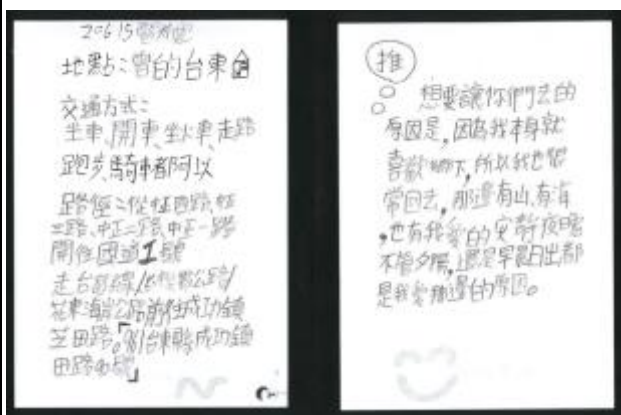 20615
地點:曾的台東
交通方式:
坐車、開車、坐火車、走路
跑步、騎車都可以
路徑:從
三路、中正二路、中正一路
開往國道1號
走台
花東海岸公路前往成功鎮
芝田路。「961台東縣成功鎮
田路
推
想要讓你們去的
原因是,因為我本身就
喜歡鄉下,所以我也常
常回去,那邊有山、有海
,也有我愛的安靜夜晚
不管夕陽,還是早晨日出都
是我愛那邊的原因。